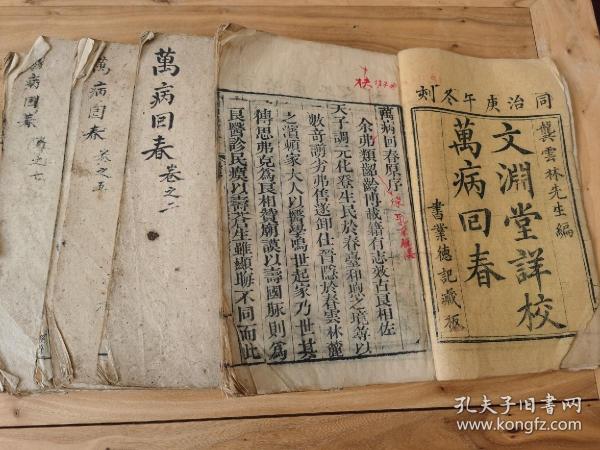 同治庚午冬刻
龔雲林先生編
文淵堂詳校
萬病回春
書業德記藏板
萬病回春原序
余弗類齠齡博載籍有志效古良相佐
天子調元化登生民於春臺和煦之境第以
數奇譾劣弗售遂卸仕晉隱於春雲林麓
之濱顧家大人以醫學鳴世起家乃世其
傳思弗克爲良相贊廟謨以壽國脉則爲
良醫診民瘼以壽蒼生雖顯晦不同而此
萬病回春 卷之二
萬病回春 卷之五
萬病回春 卷之七
孔夫子旧书网
www.kongfz.com